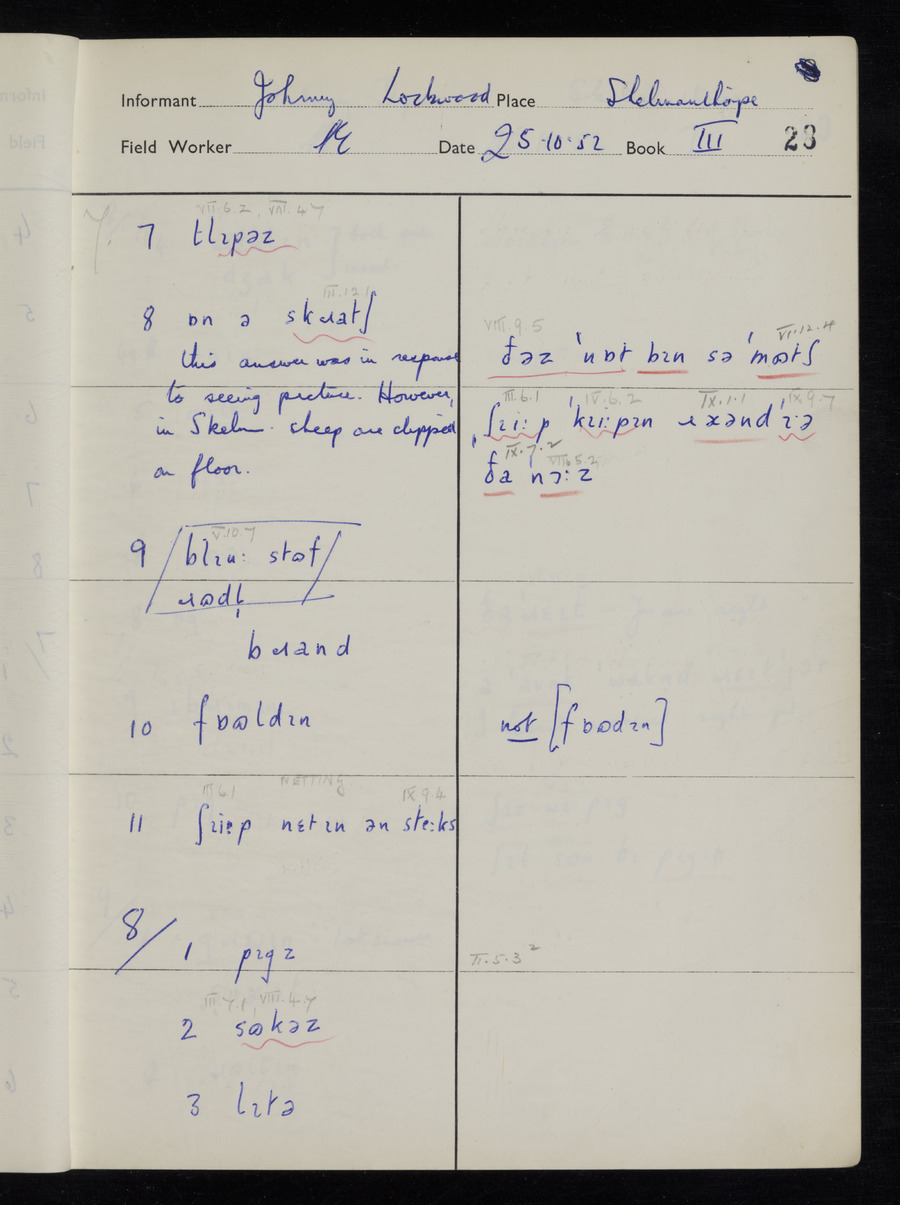 Informant Johnny Lockwood Place Skelmanthorpe
Field Worker Date 25·10·52 Book III 23
VII.6.2, VIII.4.7
7 tlɪpəz
III.12.1
8 ɒn ə skɹatʃ
this answer was in response
to seeing picture. However,
in Skelm. sheep are clipped
on floor.
VIII.9.5 VI.12.4
ðəz 'nɒt bɪn sə 'mʊtʃ
III.6.1 IV.6.2 IX.1.1 IX.9.7
ʃɪi:p 'kɪi:pɪn ɹəənd 'ɪ:ə
IX.7.2 VIII.5.2
ða 'nɔ:z
V.10.7
9 blɪu: stʊf
ɹʊdl̩
bɹand
10 fɒʊldɪn
not [fɒʊdɪn]
III.6.1 NETTING IX.9.4
11 ʃɪi:p nɛtɪn ən ste:ks
8/ 1 pɪgz
II.5.3²
III.7.1, VIII.4.7
2 sʊkəz
3 lɪtə